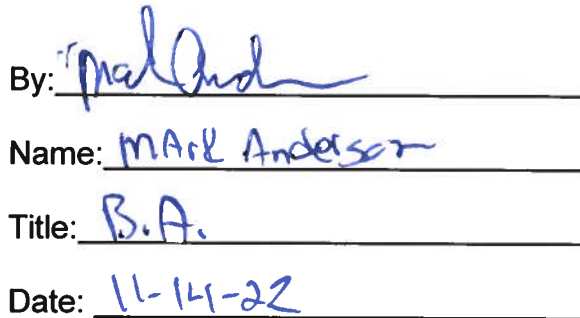 By: Mark Anderson
Name: MArk Anderson
Title: B.A.
Date: 11-14-22